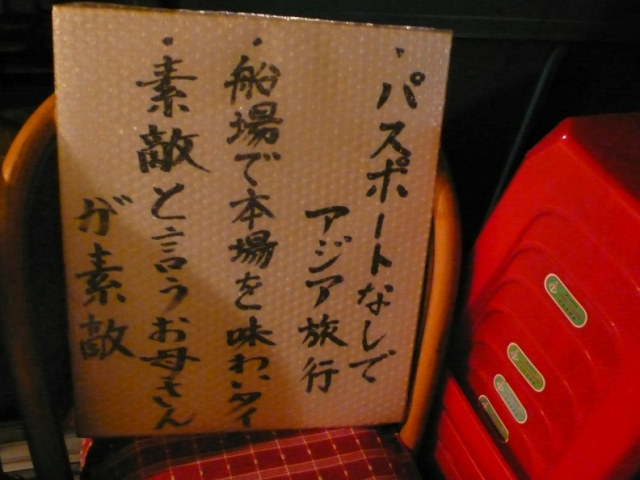 ・パスポートなしで
アジア旅行
・船場で本場を味わいタイ
・素敵と言うお母さん
が素敵